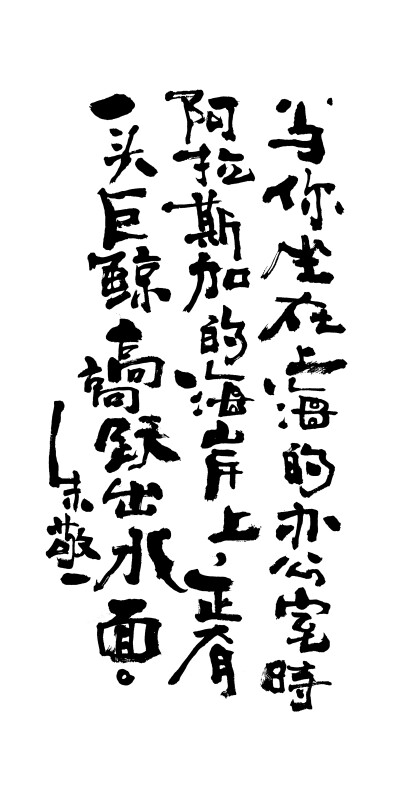 当你坐在上海的办公室時
阿拉斯加的海岸上，正有
一头巨鯨高高跃出水面。
朱敬一